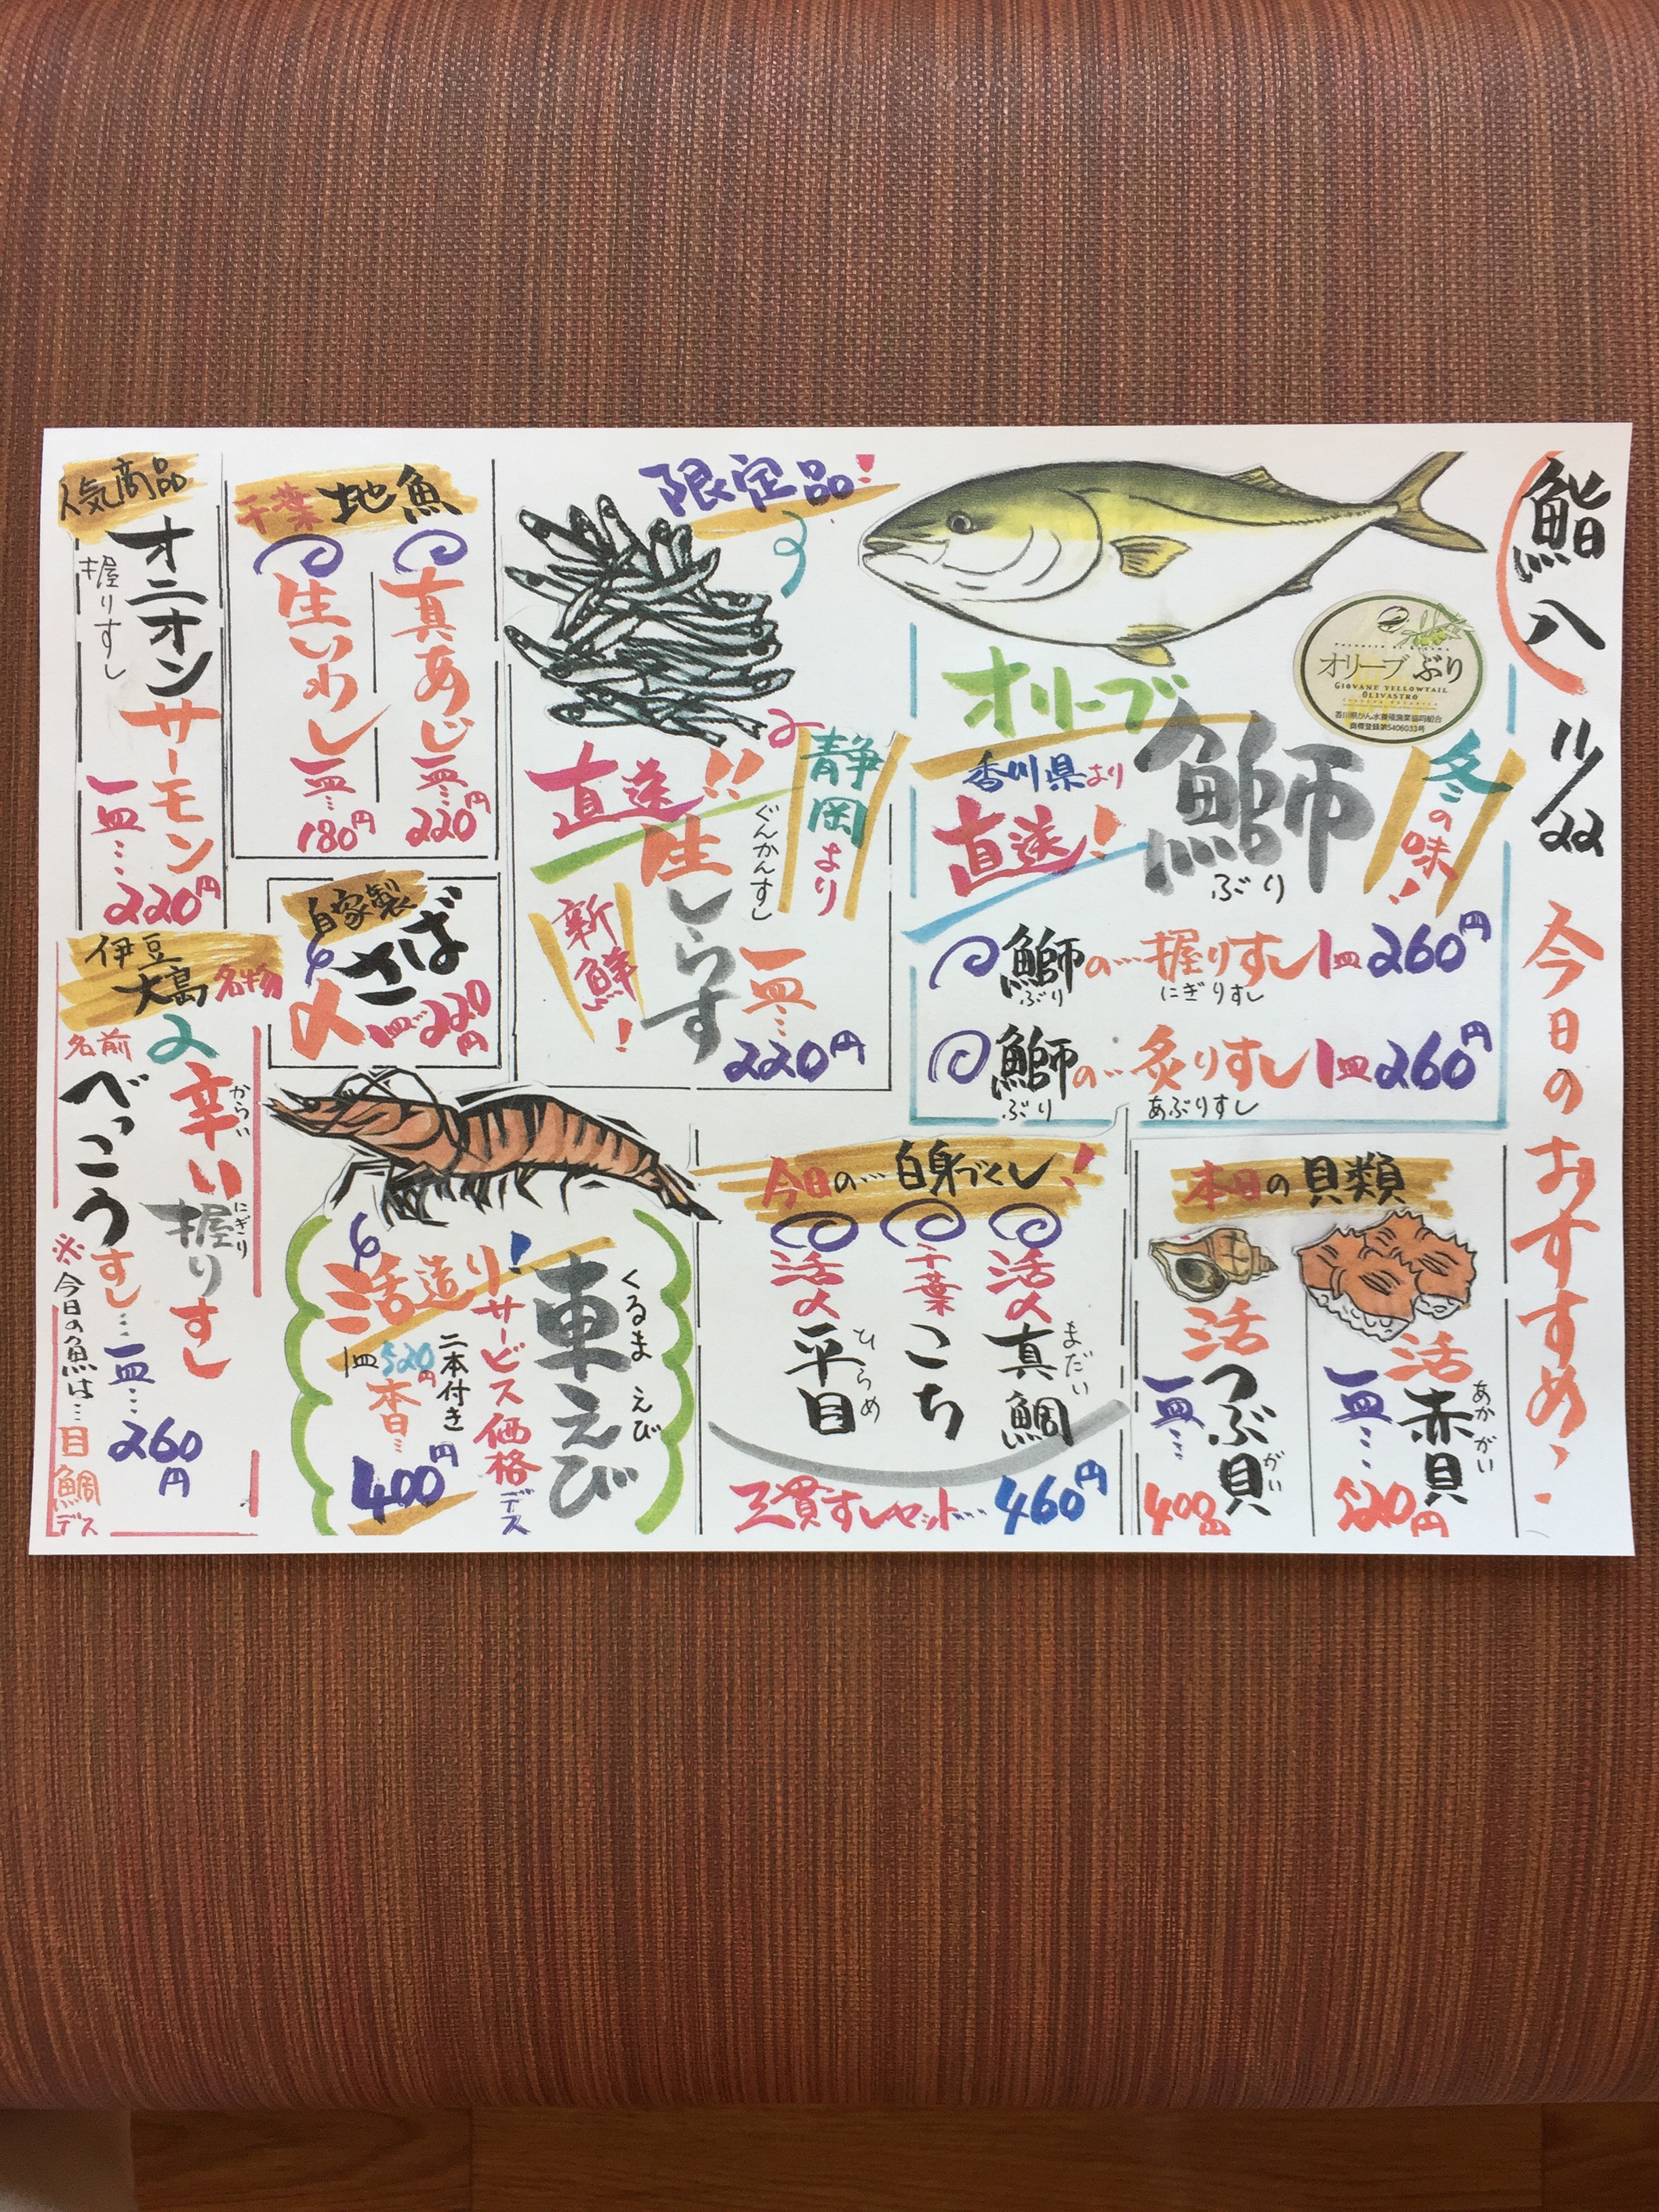 鮨八
11/22
今日のおすすめ
オリーブぶり
GIOVANE YELLOWTAIL
OLIVASTRO
香川県かん水養殖漁業協同組合
商標登録第5406033号
冬の味!
オリーブ
鰤
ぶり
香川県より
直送!
鰤の…握りすし1皿260円
ぶり
にぎりすし
鰤の…炙りすし1皿260円
ぶり
あぶりすし
限定品!
静岡より
直送!!
ぐんかんすし
生しらす
新鮮!
一皿…
220円
千葉地魚
真あじ
一皿…
220円
生いわし
一皿…
180円
人気商品
オニオンサーモン
握りすし
一皿…
220円
自家製
〆さば
一皿…220円
伊豆
大島名物
辛い握りすし
からい
にぎり
名前
べっこうすし…一皿…
260円
※今日の魚は…目鯛デス
本日の貝類
活赤貝
あかがい
一皿…
520円
活つぶ貝
がい
一皿…
400円
今日の…白身づくし!
活〆真鯛
まだい
千葉こち
活〆平目
ひらめ
三貫すしセット…460円
車えび
くるまえび
活造り!
サービス価格デス
二本付き
1皿520円
本日…
400円